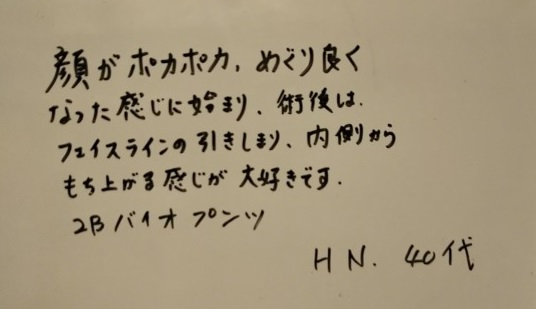 顔がポカポカ、めぐり良く
なった感じに始まり、術後は、
フェイスラインの引きしまり、内側から
もち上がる感じが大好きです.
2Bバイオプンツ
HN. 40代